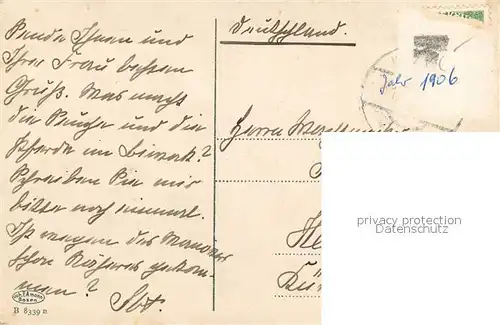 Sende Ihnen und
Ihrer Frau besten
Gruß. Was macht
die Seuche und die
Pferde im Biwack?
Schreiben Sie mir
bitte noch einmal.
Ist wegen des Manövers
schon Näheres gekom-
men?
Deutschland.
Jahr 1906
Herrn
privacy protection
watermark
B 8339 n